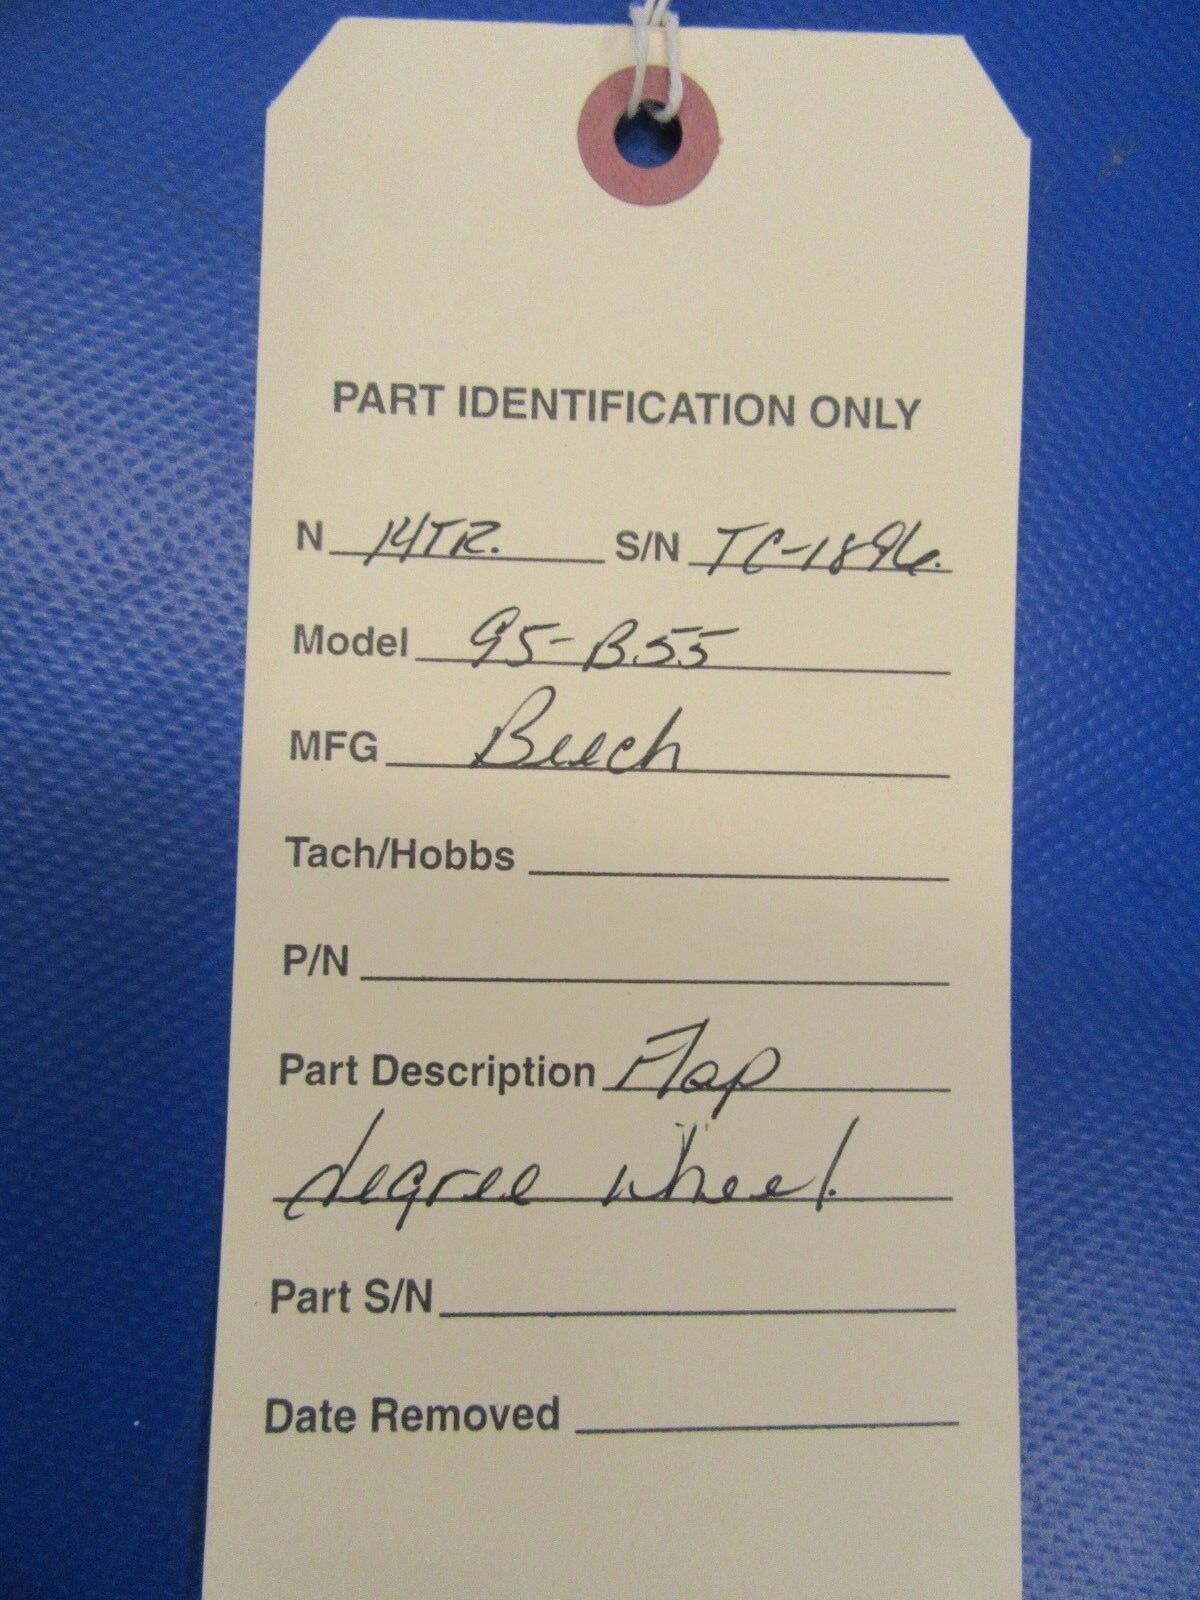 PART IDENTIFICATION ONLY
N 14TR. S/N TC-1896.
Model 95-B55
MFG Beech
Tach/Hobbs
P/N
Part Description Flap
degree wheel.
Part S/N
Date Removed